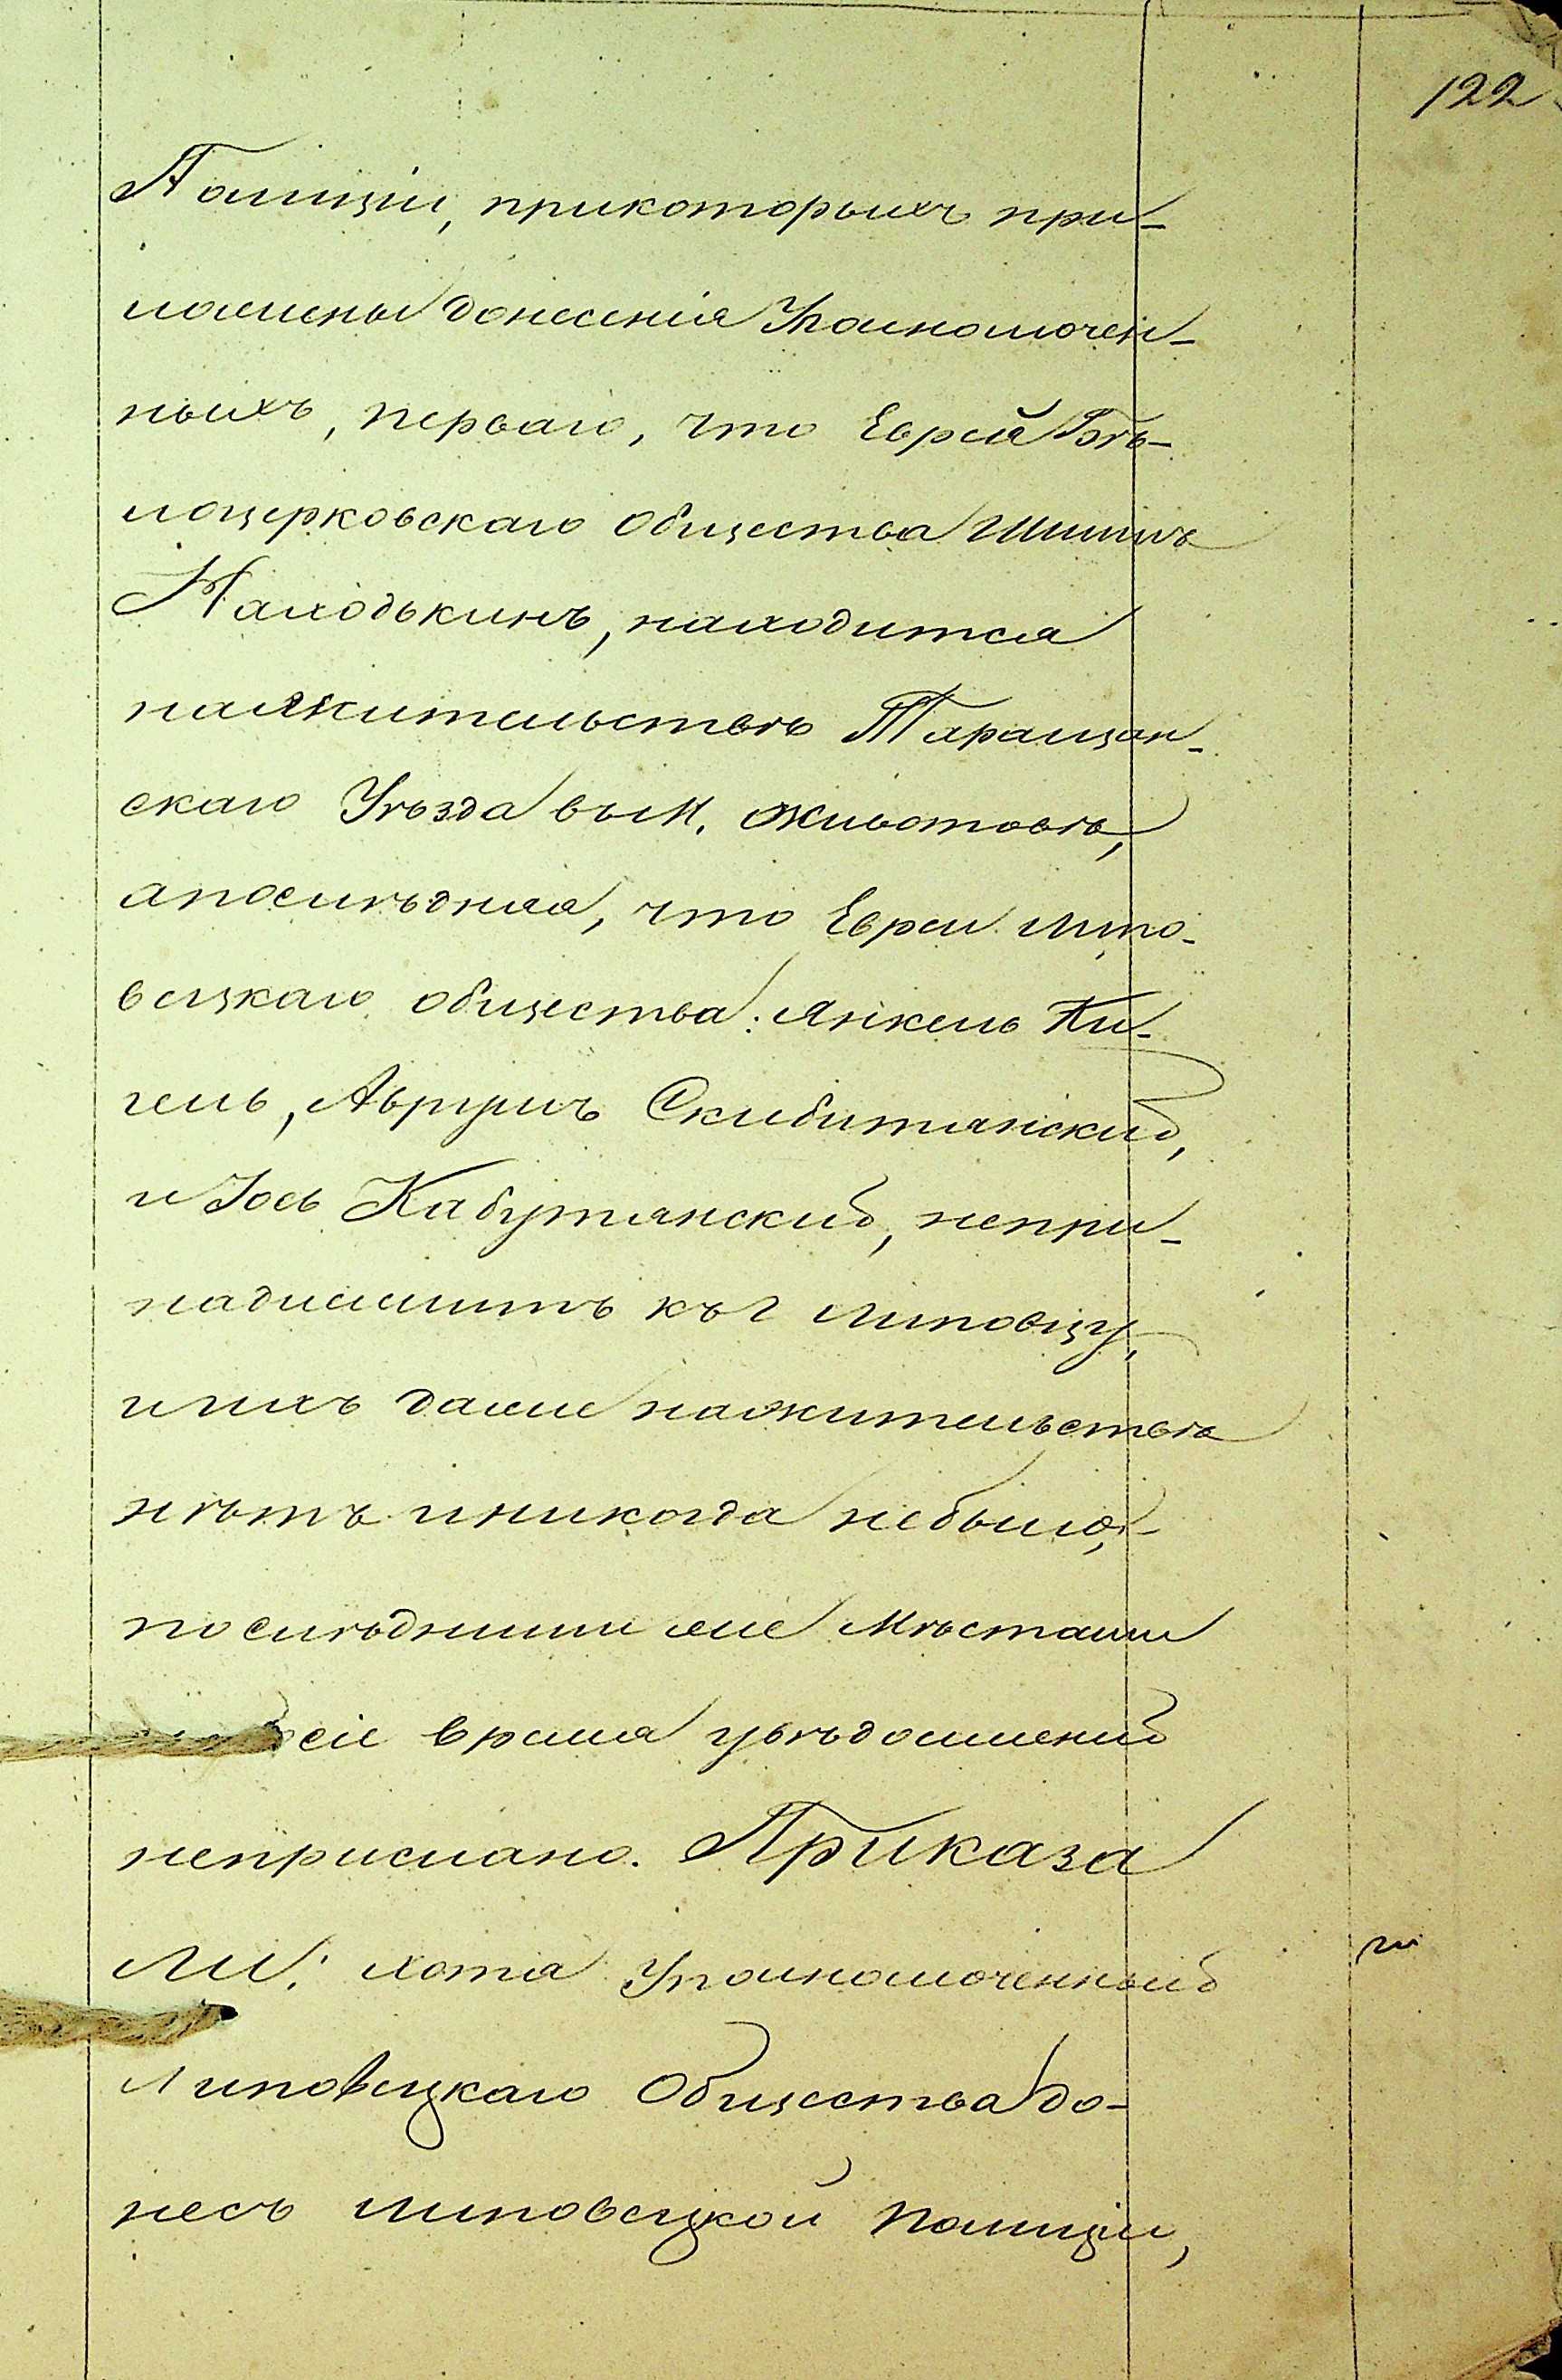 122
Полиціи, прикоторыхъ при-
ложены донесенія Уполномочен-
ныхъ, перваго, что Еврей Бѣ-
лоцерковскаго общества Шмилъ
Находькинъ, находится
нажительствѣ Таращан-
скаго Уѣзда вьм. Животовѣ,
апослѣдняя, что Евреи Липо-
вецкаго общества: Янкель Ки-
гель, Аврумъ Скибитянский,
и Іось Кабутянский, непри-
надлежитъ къ г Липовцу,
и ихъ даже нажительствѣ
нѣтъ иникогда небыло,
послѣдними же Мѣстами
сіе время увѣдомлений
неприслано. Приказа
ли: хотя Уполномоченный
Липовецкаго Общества до-
несъ Липовецкой Полиціи,